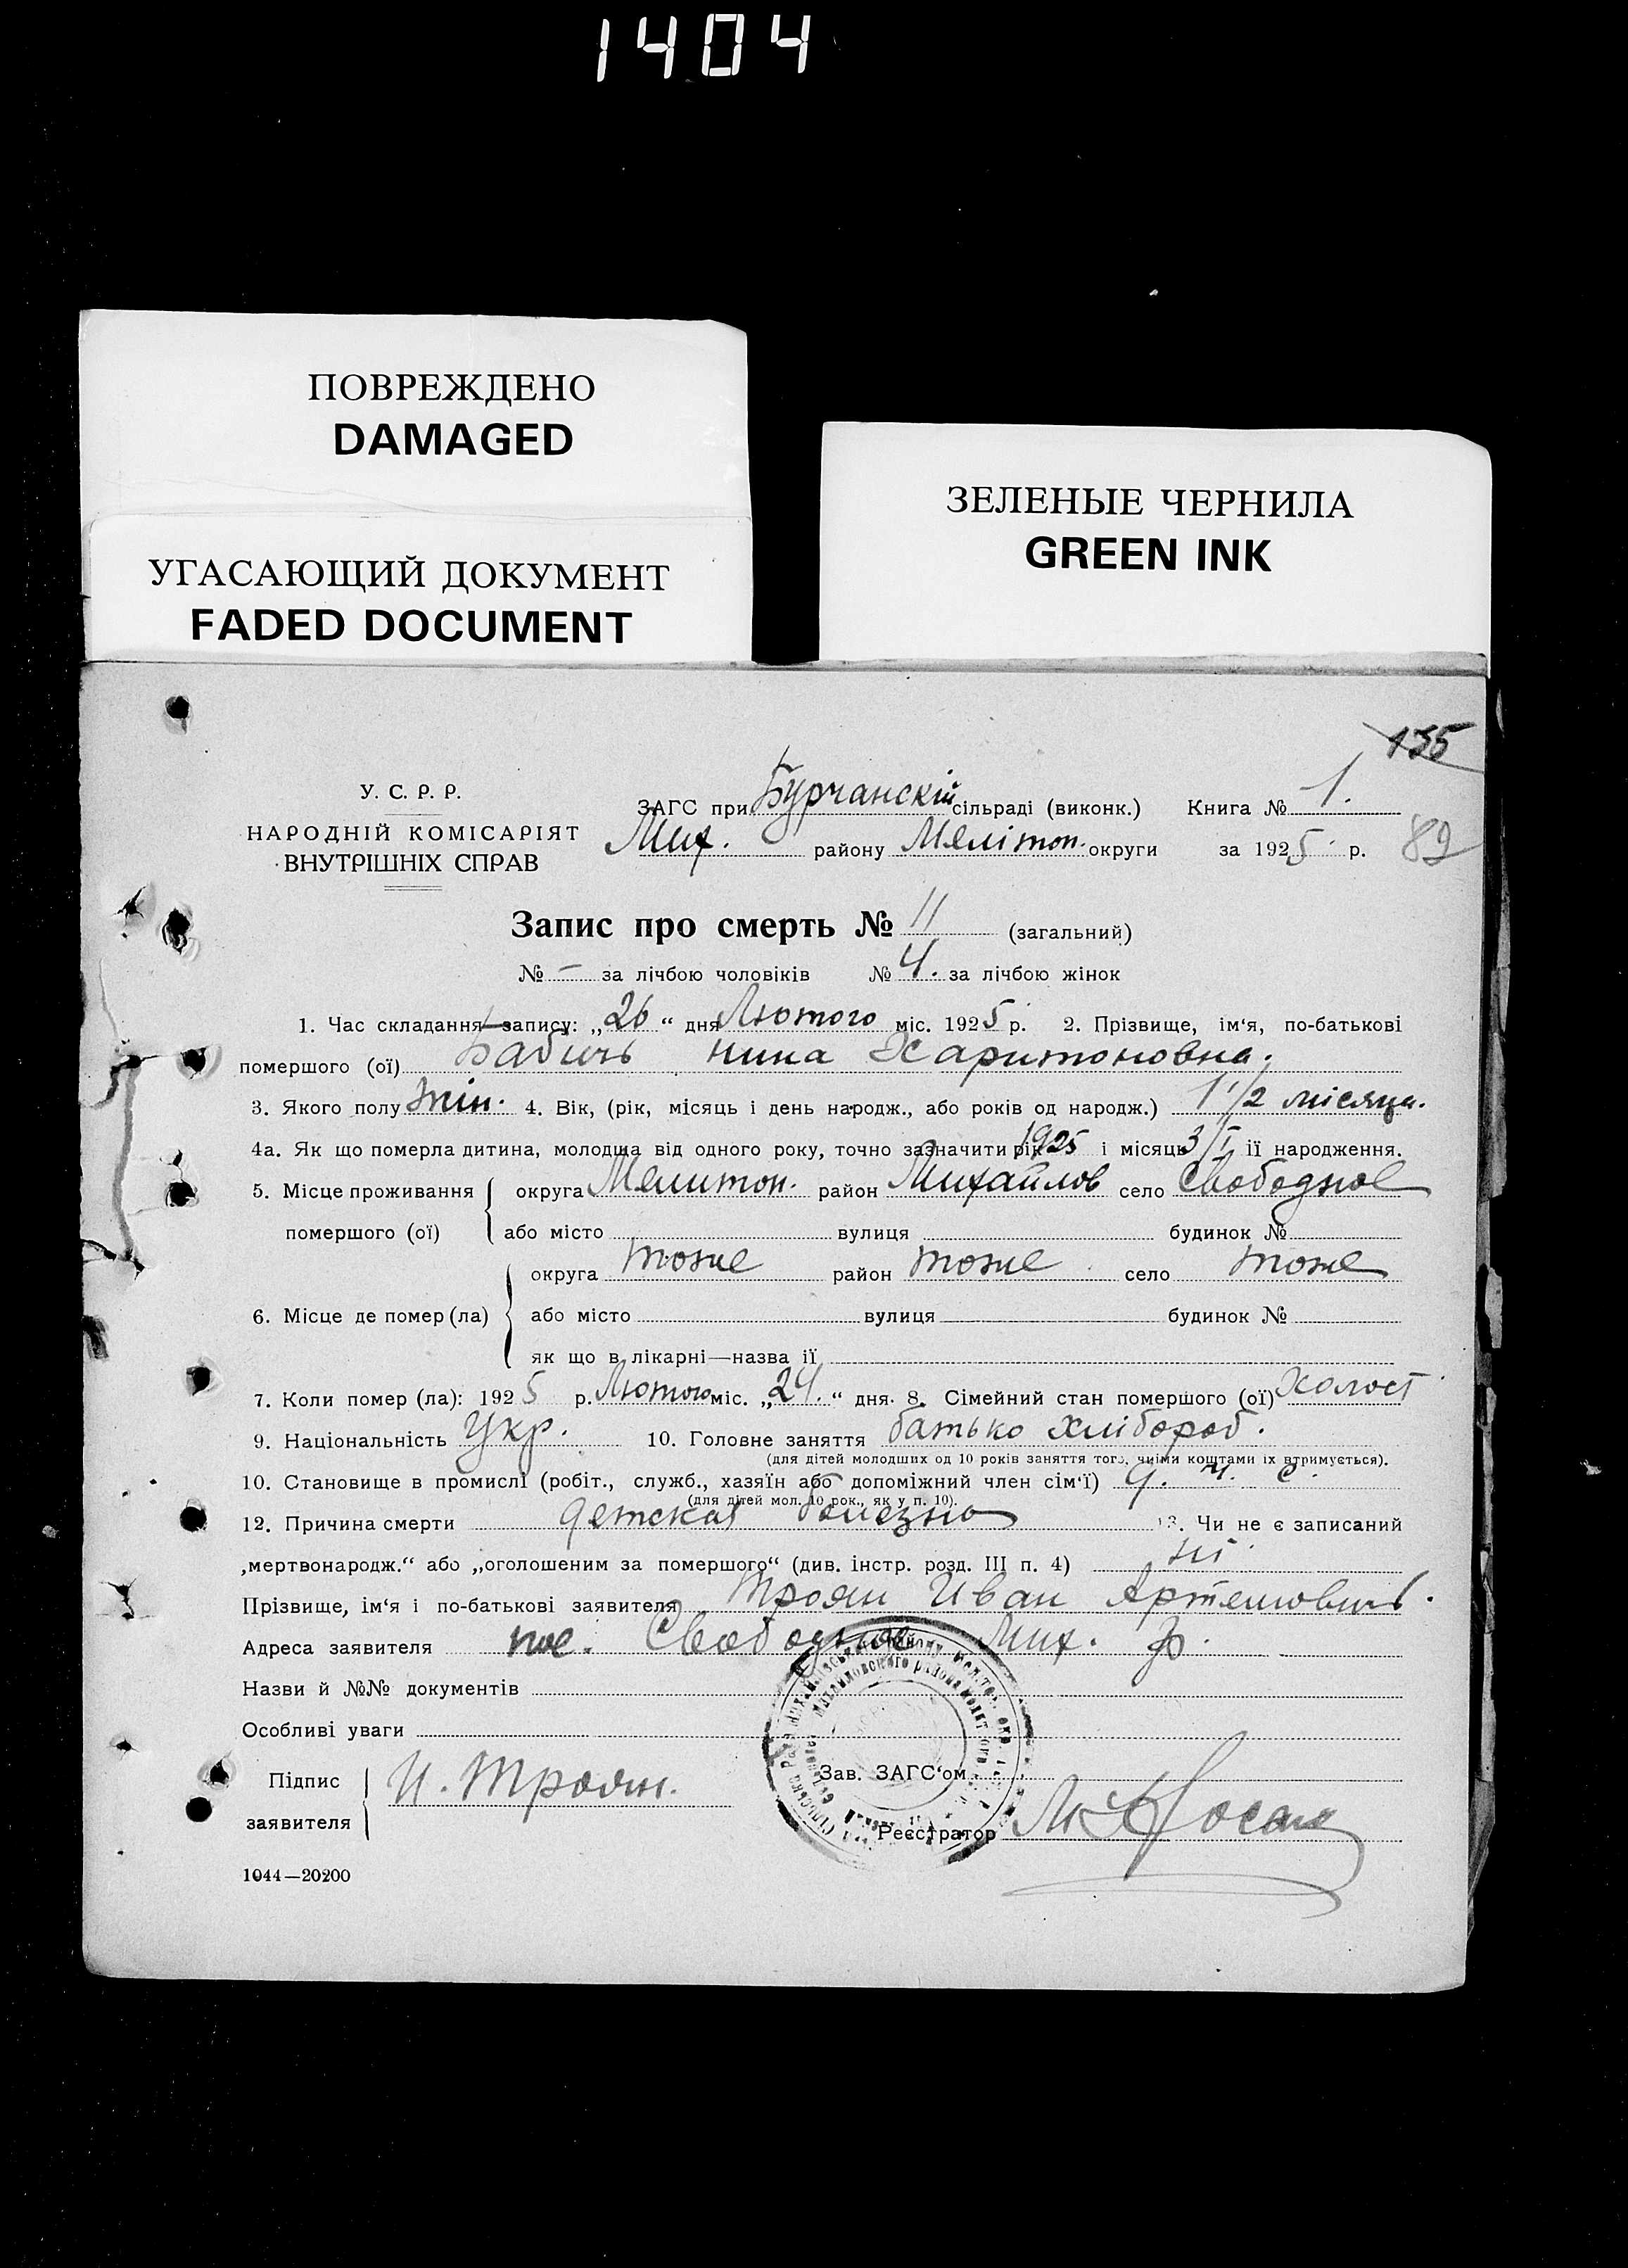 1404
ПОВРЕЖДЕНО
DAMAGED
УГАСАЮЩИЙ ДОКУМЕНТ
FADED DOCUMENT
ЗЕЛЕНЫЕ ЧЕРНИЛА
GREEN INK
135
У. С. Р. Р.
НАРОДНІЙ КОМІСАРІЯТ
ВНУТРІШНІХ СПРАВ
ЗАГС при Бурчанскій сільраді (виконк.) Книга № 1.
Мих. району Мелітоп. округи за 1925 р. 89
Запис про смерть № 11 (загальний)
№ – за лічбою чоловіків № 4. за лічбою жінок
1. Час складання запису: „26“ дня Лютого міс. 1925 р. 2. Прізвище, ім‘я, по-батькові
помершого (ої) Бабичь Нина Харитоновна.
3. Якого полу жін. 4. Вік, (рік, місяць і день народж., або років од народж.) 1 1/2 місяца.
4а. Як що померла дитина, молодша від одного року, точно зазначити рік 1925 і місяць 3/I її народження.
5. Місце проживання округа Мелитоп. район Михайлов село Свободное
помершого (ої) або місто вулиця будинок №
округа тоже район тоже село тоже
6. Місце де помер (ла) або місто вулиця будинок №
як що в лікарні—назва її
7. Коли помер (ла): 1925 р. Лютого міс. „24.“ дня. 8. Сімейний стан помершого (ої) Холост
9. Національність Укр. 10. Головне заняття батько Хлібороб.
(для дітей молодших од 10 років заняття того, чиїми коштами їх втримується).
10. Становище в промислі (робіт., служб., хазяїн або допоміжний член сім‘ї) д. ч. с.
(для дітей мол. 10 рок., як у п. 10).
12. Причина смерти детская болезнь 13. Чи не є записаний
„мертвонародж.“ або „оголошеним за помершого“ (див. інстр. розд. III п. 4) ні
Прізвище, ім‘я і по-батькові заявителя Троян Иван Артемович.
Адреса заявителя пос. Свободное Мих. р.
Назви й №№ документів
Особливі уваги
Підпис
заявителя И. Троян.
Зав. ЗАГС‘ом
Реєстратор
1044—20200